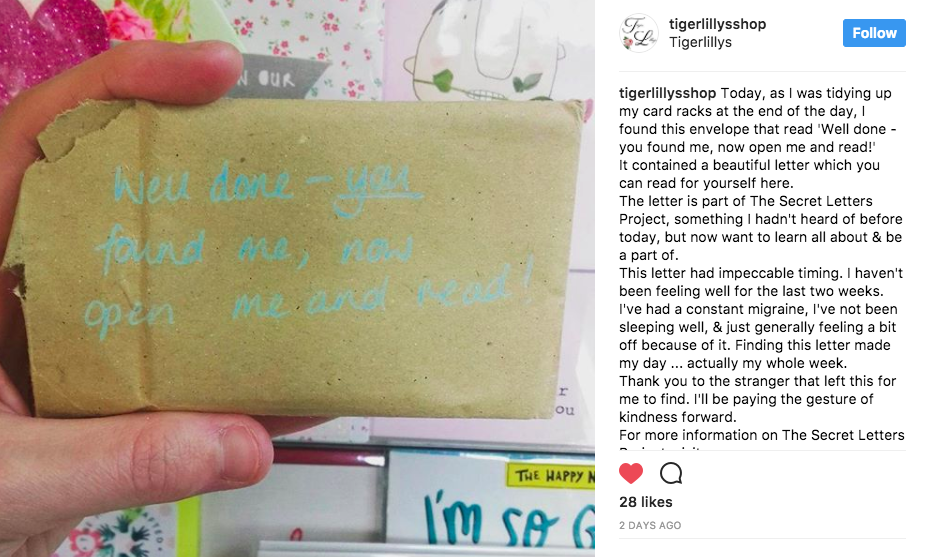 N OUR
Well done - you
found me, now
open me and read!
r
ou
THE HAPPY N
I'M SO G
tigerlillysshop
Tigerlillys
Follow
tigerlillysshop Today, as I was tidying up
my card racks at the end of the day, I
found this envelope that read 'Well done -
you found me, now open me and read!'
It contained a beautiful letter which you
can read for yourself here.
The letter is part of The Secret Letters
Project, something I hadn't heard of before
today, but now want to learn all about & be
a part of.
This letter had impeccable timing. I haven't
been feeling well for the last two weeks.
I've had a constant migraine, I've not been
sleeping well, & just generally feeling a bit
off because of it. Finding this letter made
my day ... actually my whole week.
Thank you to the stranger that left this for
me to find. I'll be paying the gesture of
kindness forward.
For more information on The Secret Letters
28 likes
2 DAYS AGO